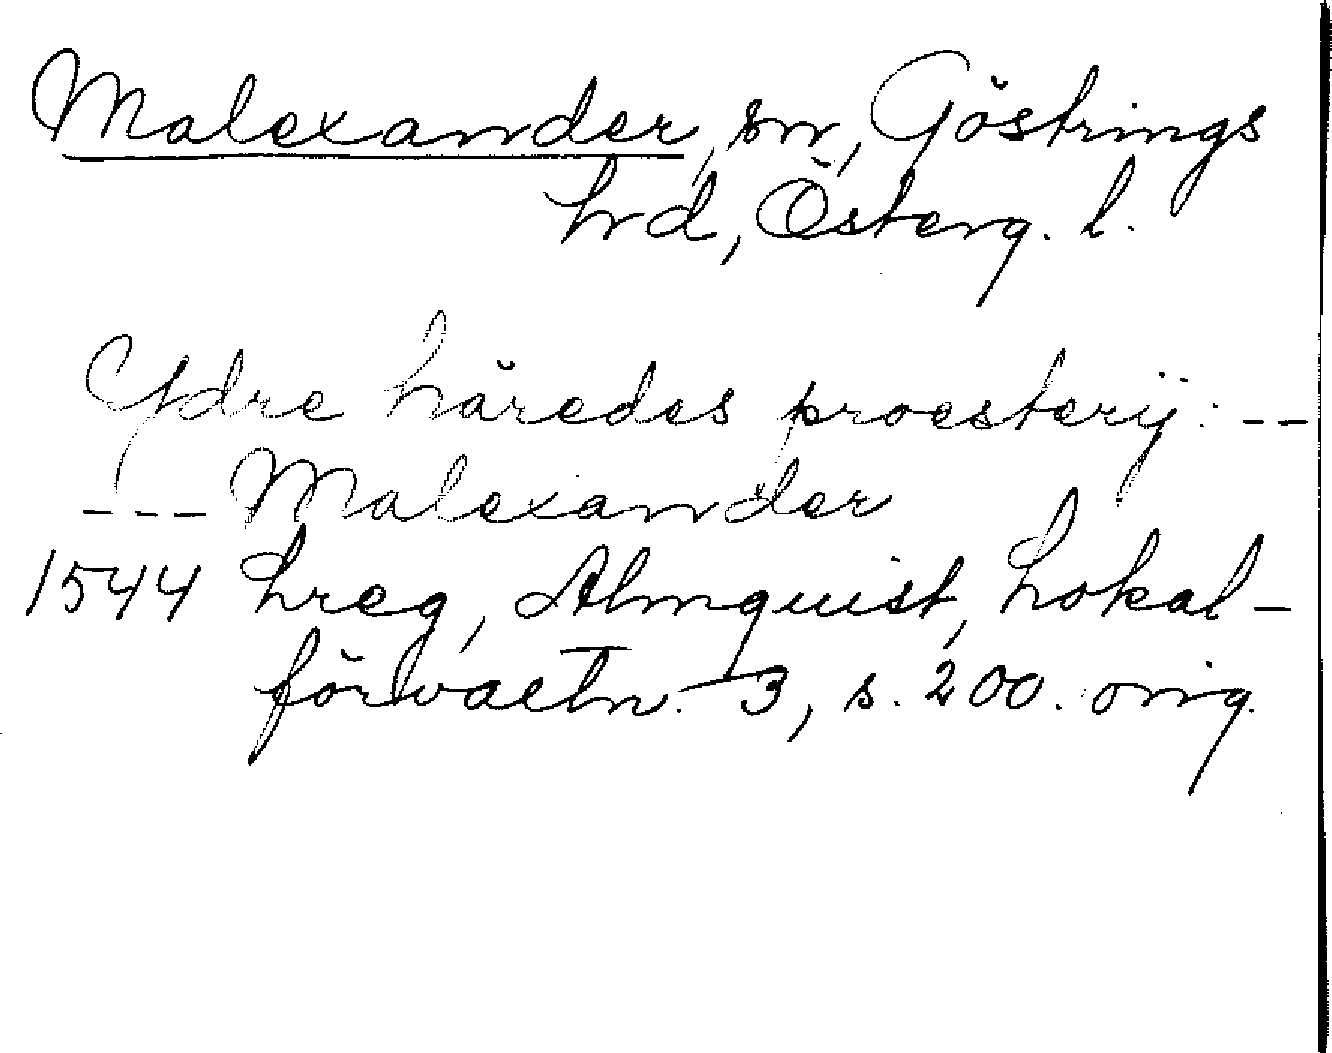 Malexander, sn, Göstrings
hrd, Österg. l.
Ydre häredes proesterij: --
--- Malexander
1544 Lreg, Almquist, Lokal-
förvaltn. 3, s. 200. orig.